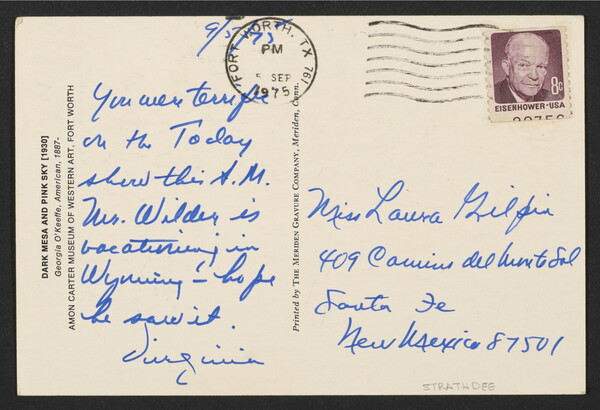 9/5/75
FORT WORTH, TX 761
PM
5 SEP
1975
8c
EISENHOWER·USA
You were terrific
on the Today
show this A.M.
Mr. Wilder is
vacationing in
Wyoming – hope
he saw it.
Virginia
DARK MESA AND PINK SKY [1930]
Georgia O'Keeffe, American, 1887-
AMON CARTER MUSEUM OF WESTERN ART, FORT WORTH
Printed by THE MERIDEN GRAVURE COMPANY, Meriden, Conn.
Miss Laura Gilpin
409 Camino del Monte Sol
Santa Fe
New Mexico 87501
STRATHDEE